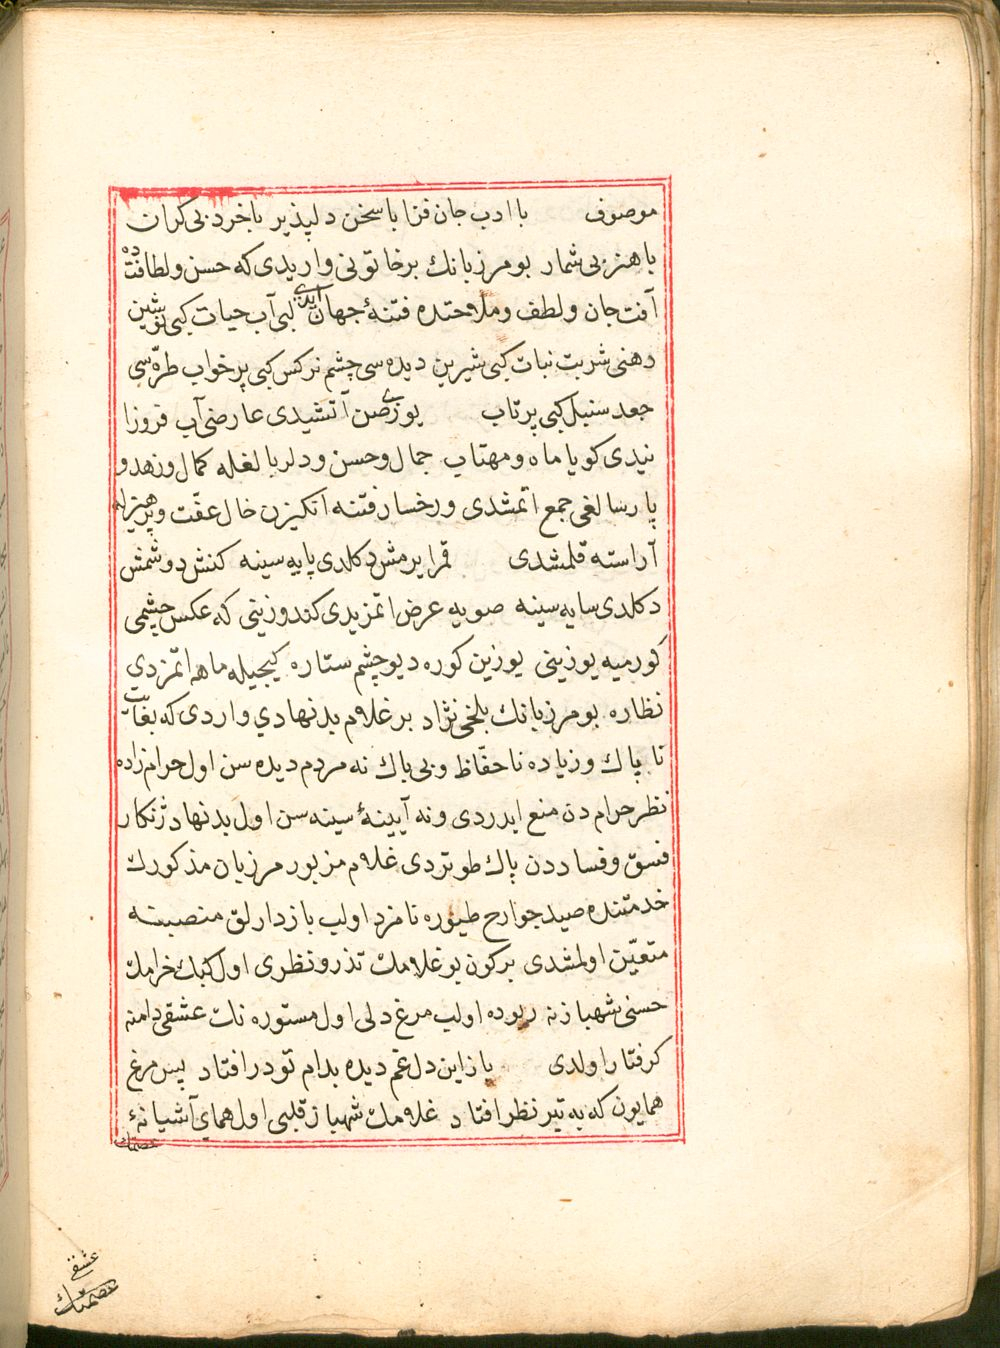 موصوف با ادب جان فزا با سخن دلپذیر با خرد بی کران
با هنر بی شمار بو مرزبانك بر خاتونی وار یدی که حسن و لطافتده
آفت جان و لطف و ملاحتده فتنهٔ جهان ایدی لبی آب حیات کبی نوشین
دهنی شربت نبات کبی شیرین دیده سی چشم نرکس کبی پر خواب طره سی
جعد سنبل کبی پر تاب یوزی صن آتشیدی عارضی آب فروزا
نیدی کویا ماه و مهتاب جمال و حسن و دلربالغله کمال و زهد و
پارسالغی جمع اتمشدی و رخسار فتنه انکیزن خال عفّت و پرهیزله
آراسته قلمشدی قمر ایرمش دکلدی پایه سینه کنش دوشمش
دکلدی سایه سینه صویه عرض اتمزیدی کندوزینی که عکس چشمی
کورمیه یوزینی یوزین کوره دیو چشم ستاره کیجیله ماهه اتمزدی
نظاره بو مرزبانك بلخی نژاد بر غلام بدنهادی واردی که بغایت
نا پاك و زیاده ناحفّاظ و بی باك نه مردم دیده سن اول حرامزاده
نظر حرام دن منع ایدردی و نه آیینهٔ سینه سن اول بدنهاد ژنکار
فسق و فساددن پاك طوتردی غلام مزبور مرزبان مذکورك
خدمتنده صید جوارح طیوره نامزد اولب بازدارلق منصبنه
متعیّن اولمشدی بر کون بو غلامك تذرو نظری اول کبك خرامك
حسنی شهبازنه ربوده اولب مرغ دلی اول مستوره نك عشقی دامنه
کرفتار اولدی باز این دل غم دیده بدام تو در افتاد پس مرغ
همایون که به تیر نظر افتاد غلامك شهباز قلبی اول همای آشیانهٔ
عصمتك
عشقی
عصمتك